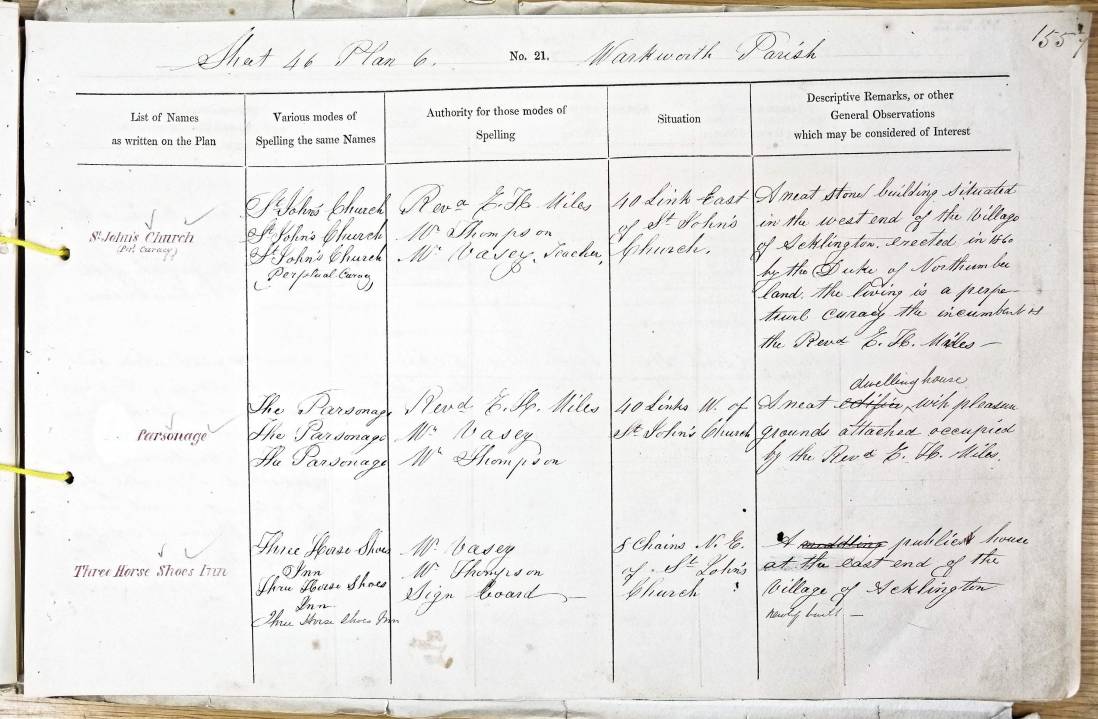 1557
Sheet 46 Plan 6. No. 21. Warkworth Parish
List of Names
as written on the Plan
Various modes of
Spelling the same Names
Authority for those modes of
Spelling
Situation
Descriptive Remarks, or other
General Observations
which may be considered of Interest
St. John's Church
(Per. Curacy)
St. John's Church
St. John's Church
St. John's Church
Perpetual Curacy
Revd. E. H. Miles
Mr. Thompson
Mr. Vasey, Teacher,
40 Link East
of St. John's
Church.
A neat stone building situated
in the west end of the Village
of Acklington. erected in 1860
by the Duke of Northumber
land. the living is a perpe-
tual curacy the incumbent is
the Revd E. H. Miles —
Parsonage
The Parsonage
The Parsonage
The Parsonage
Revd E. H. Miles
Mr. Vasey
Mr. Thompson
40 Links W. of
St. John's Church
dwelling house
A neat edifice with pleasure
grounds attached occupied
by the Revd E. H. Miles.
Three Horse Shoes Inn
Three Horse Shoes
Inn
Three Horse Shoes
Inn
Three Horse Shoes Inn
Mr. Vasey
Mr. Thompson
Sign board —
8 Chains N. E.
of St. John's
Church
A middling public house
at the east end of the
Village of Acklington
newly built —